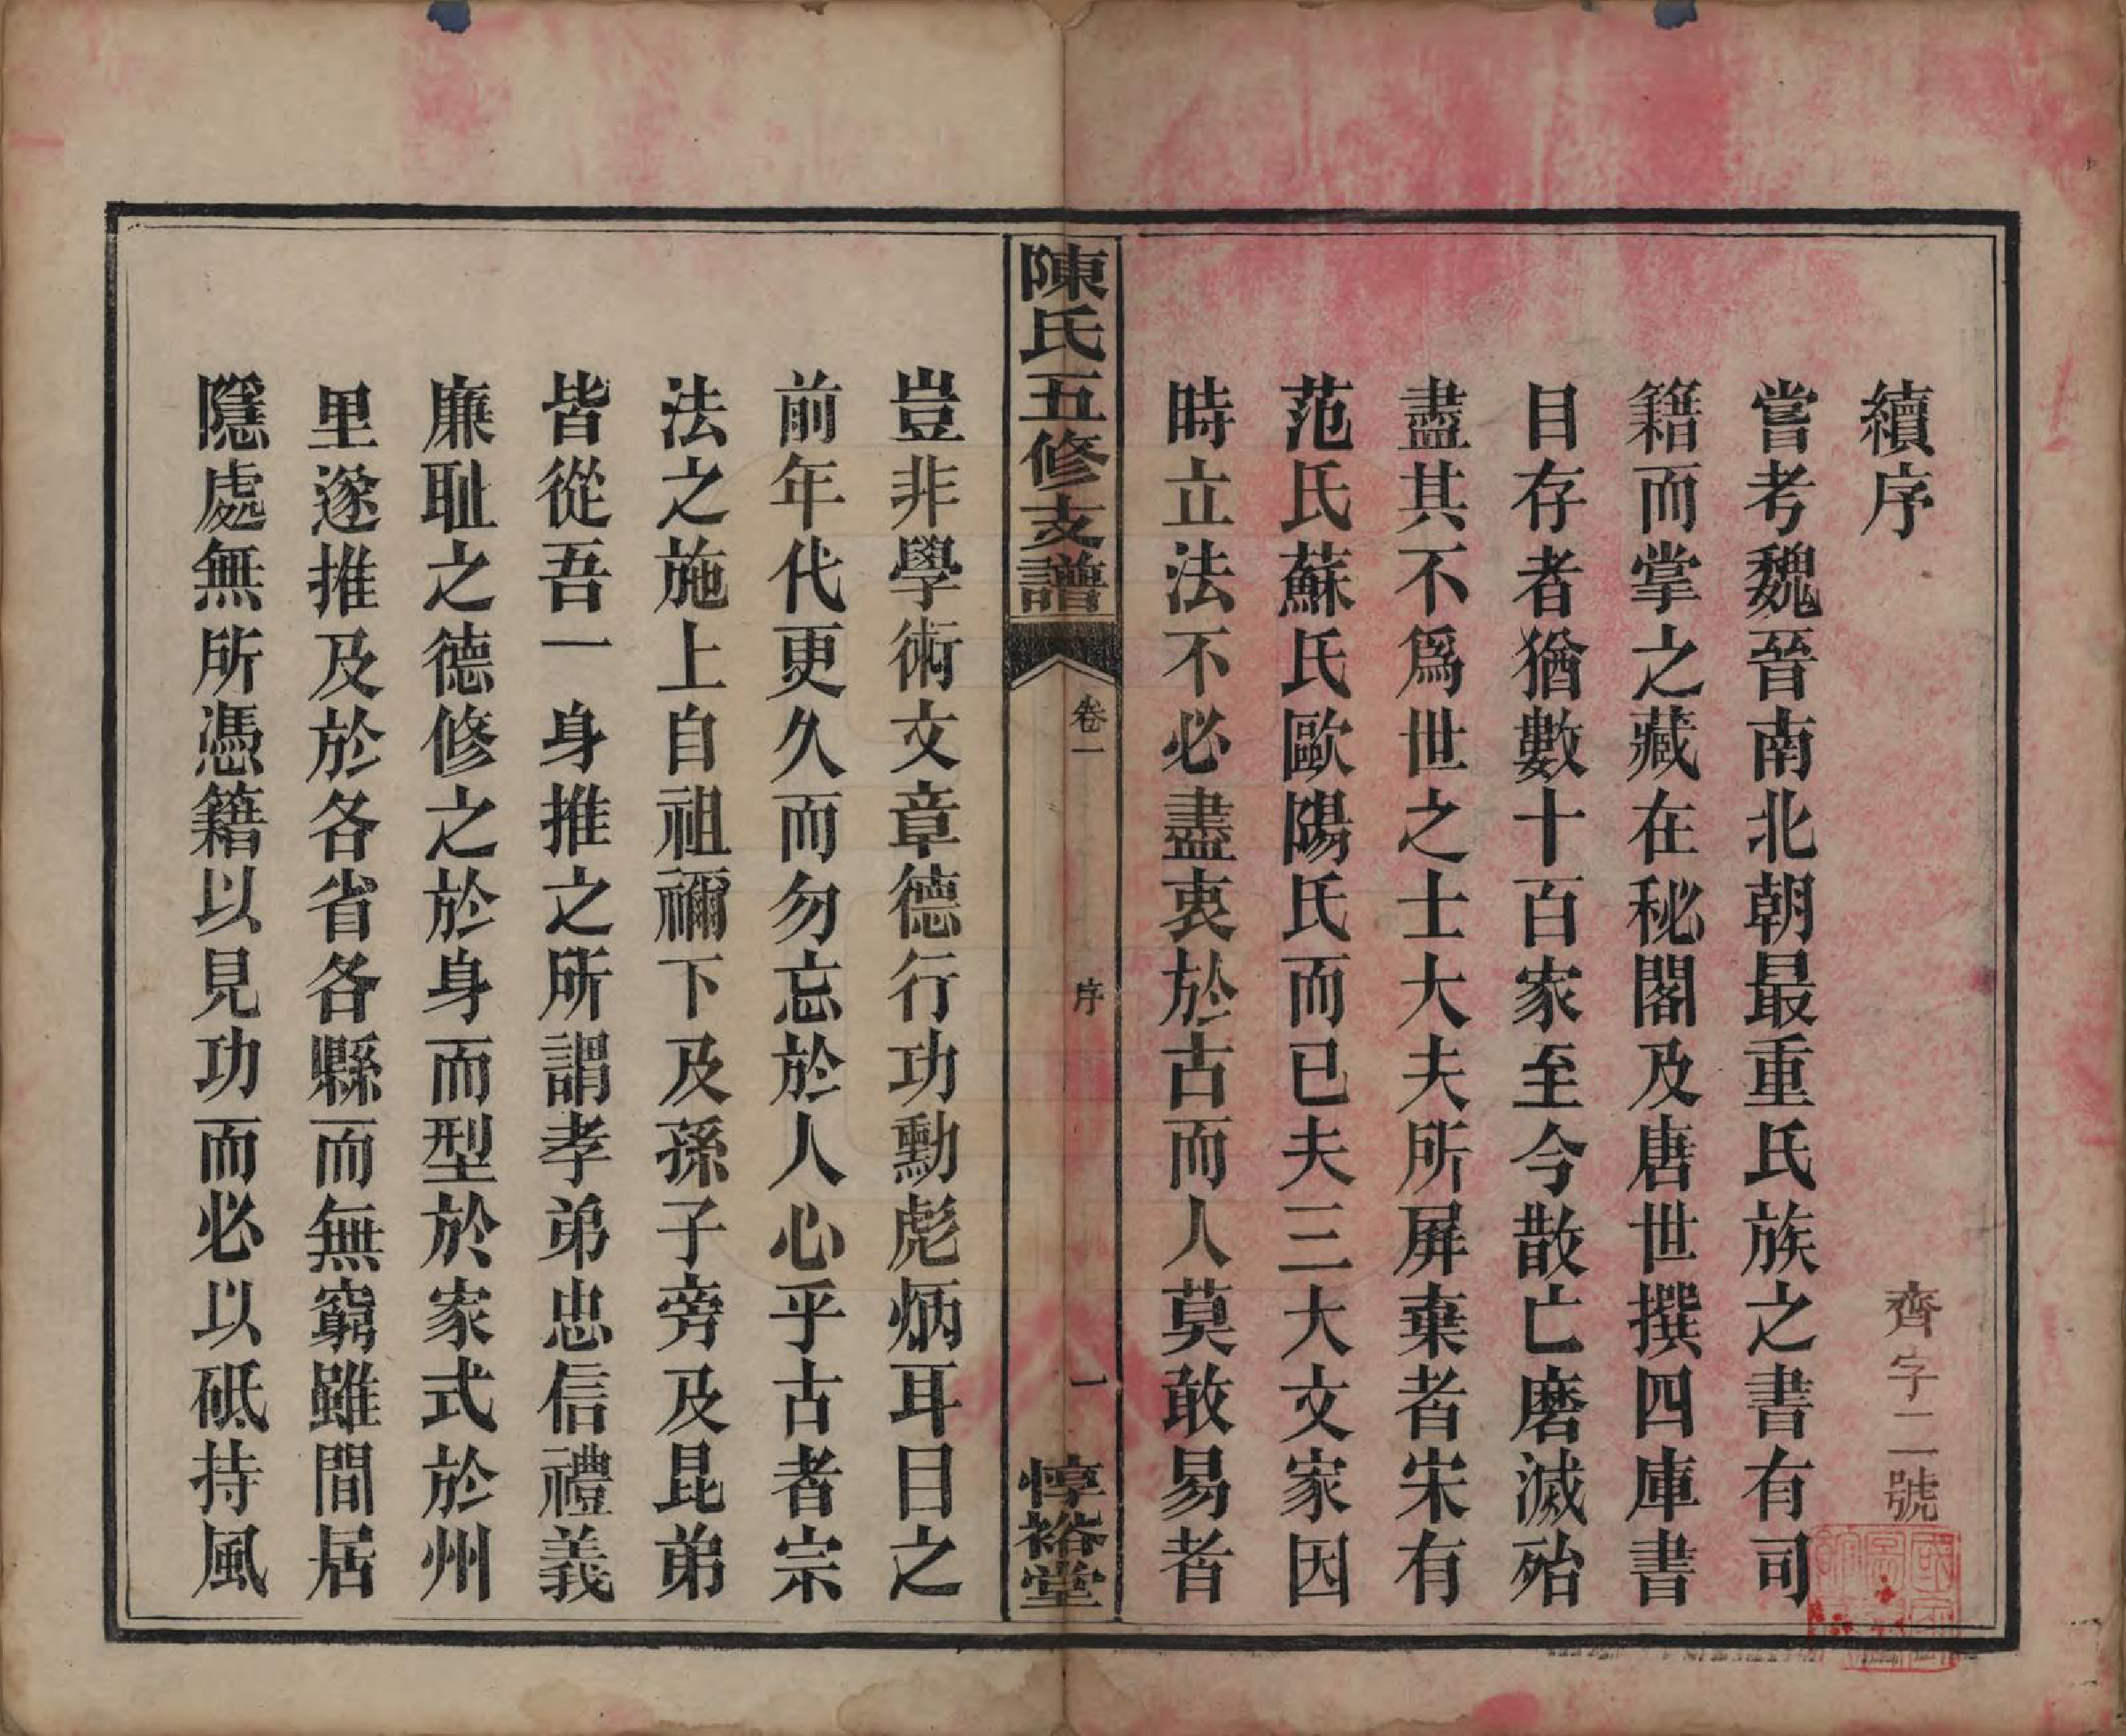 續序
齊字二號
嘗考魏晉南北朝最重氏族之書有司
籍而掌之藏在秘閣及唐世撰四庫書
目存者猶數十百家至今散亡磨滅殆
盡其不爲世之士大夫所屏棄者宋有
范氏蘇氏歐陽氏而已夫三大文家因
時立法不必盡衷於古而人莫敢易者
陳氏五修支譜
卷一
序
一
惇裕堂
豈非學術文章德行功勳彪炳耳目之
前年代更久而勿忘於人心乎古者宗
法之施上自祖禰下及孫子旁及昆弟
皆從吾一身推之所謂孝弟忠信禮義
廉耻之德修之於身而型於家式於州
里遂推及於各省各縣而無窮雖間居
隱處無所憑籍以見功而必以砥持風